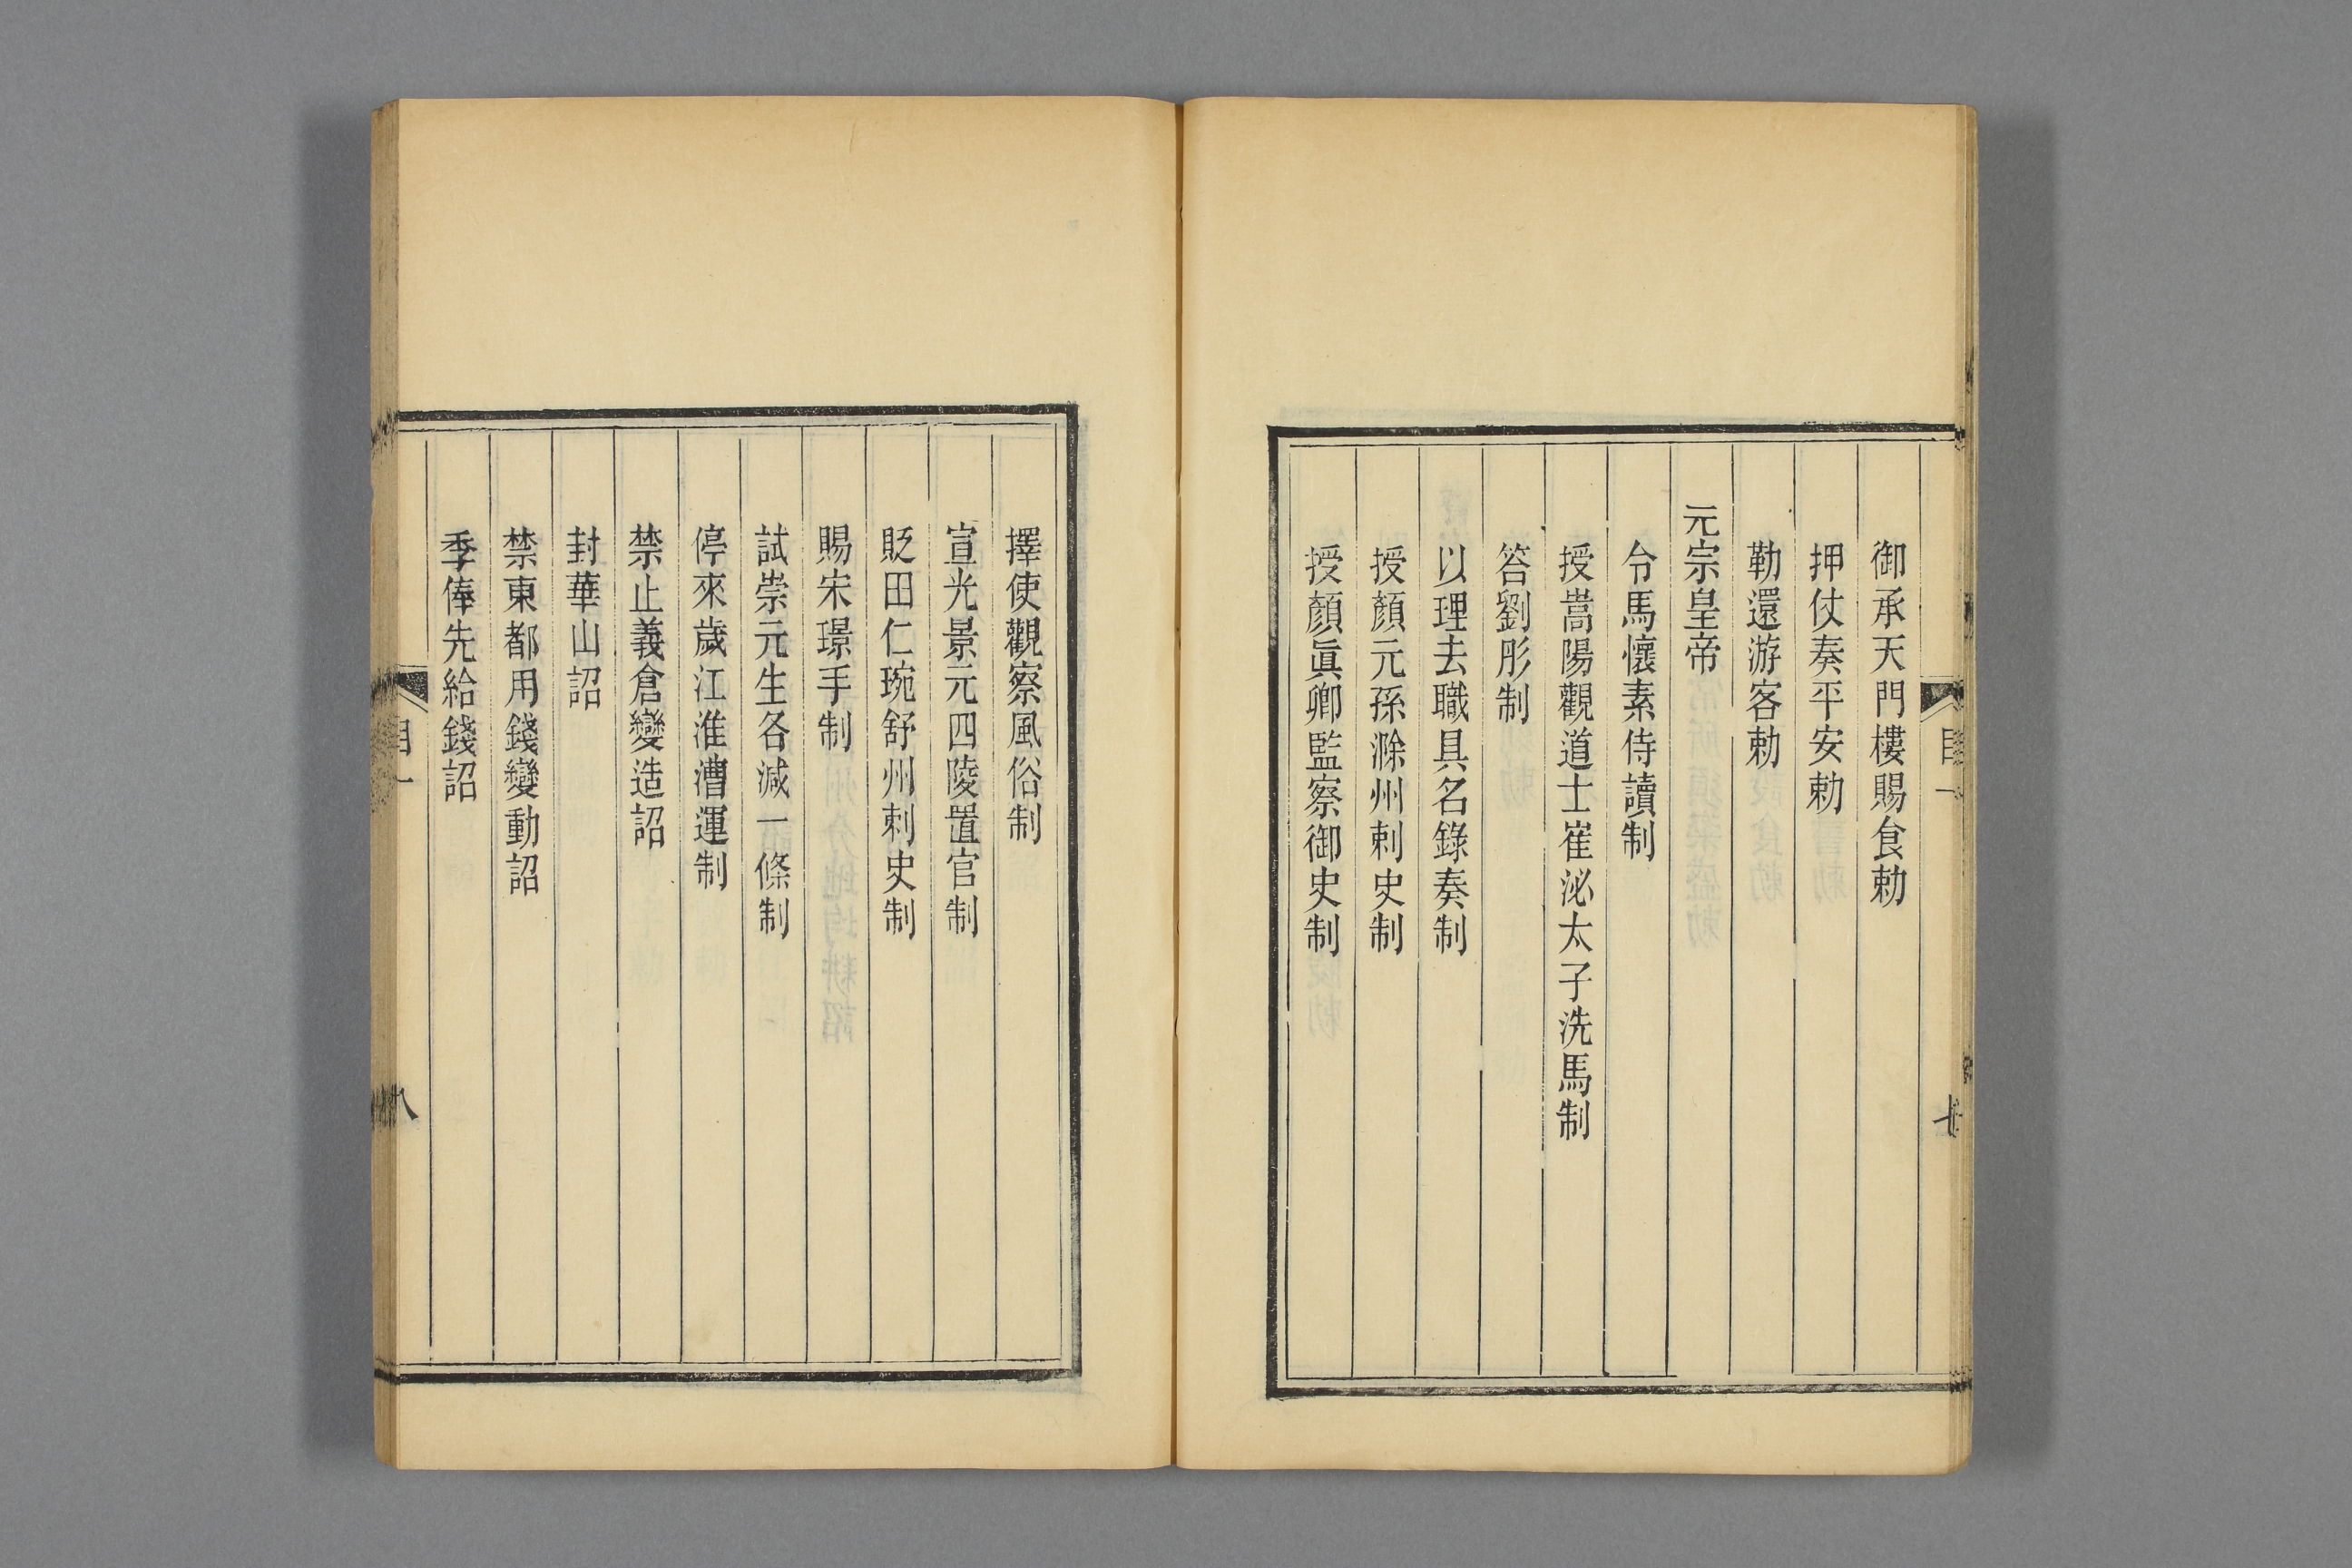 目一
七
御承天門樓賜食勅
押仗奏平安勅
勒還游客勅
元宗皇帝
令馬懷素侍讀制
授嵩陽觀道士崔泌太子洗馬制
答劉彤制
以理去職具名錄奏制
授顏元孫滁州刺史制
授顏眞卿監察御史制
擇使觀察風俗制
宣光景元四陵置官制
貶田仁琬舒州刺史制
賜宋璟手制
試崇元生各減一條制
停來歲江淮漕運制
禁止義倉變造詔
封華山詔
禁東都用錢變動詔
季俸先給錢詔
目一
八